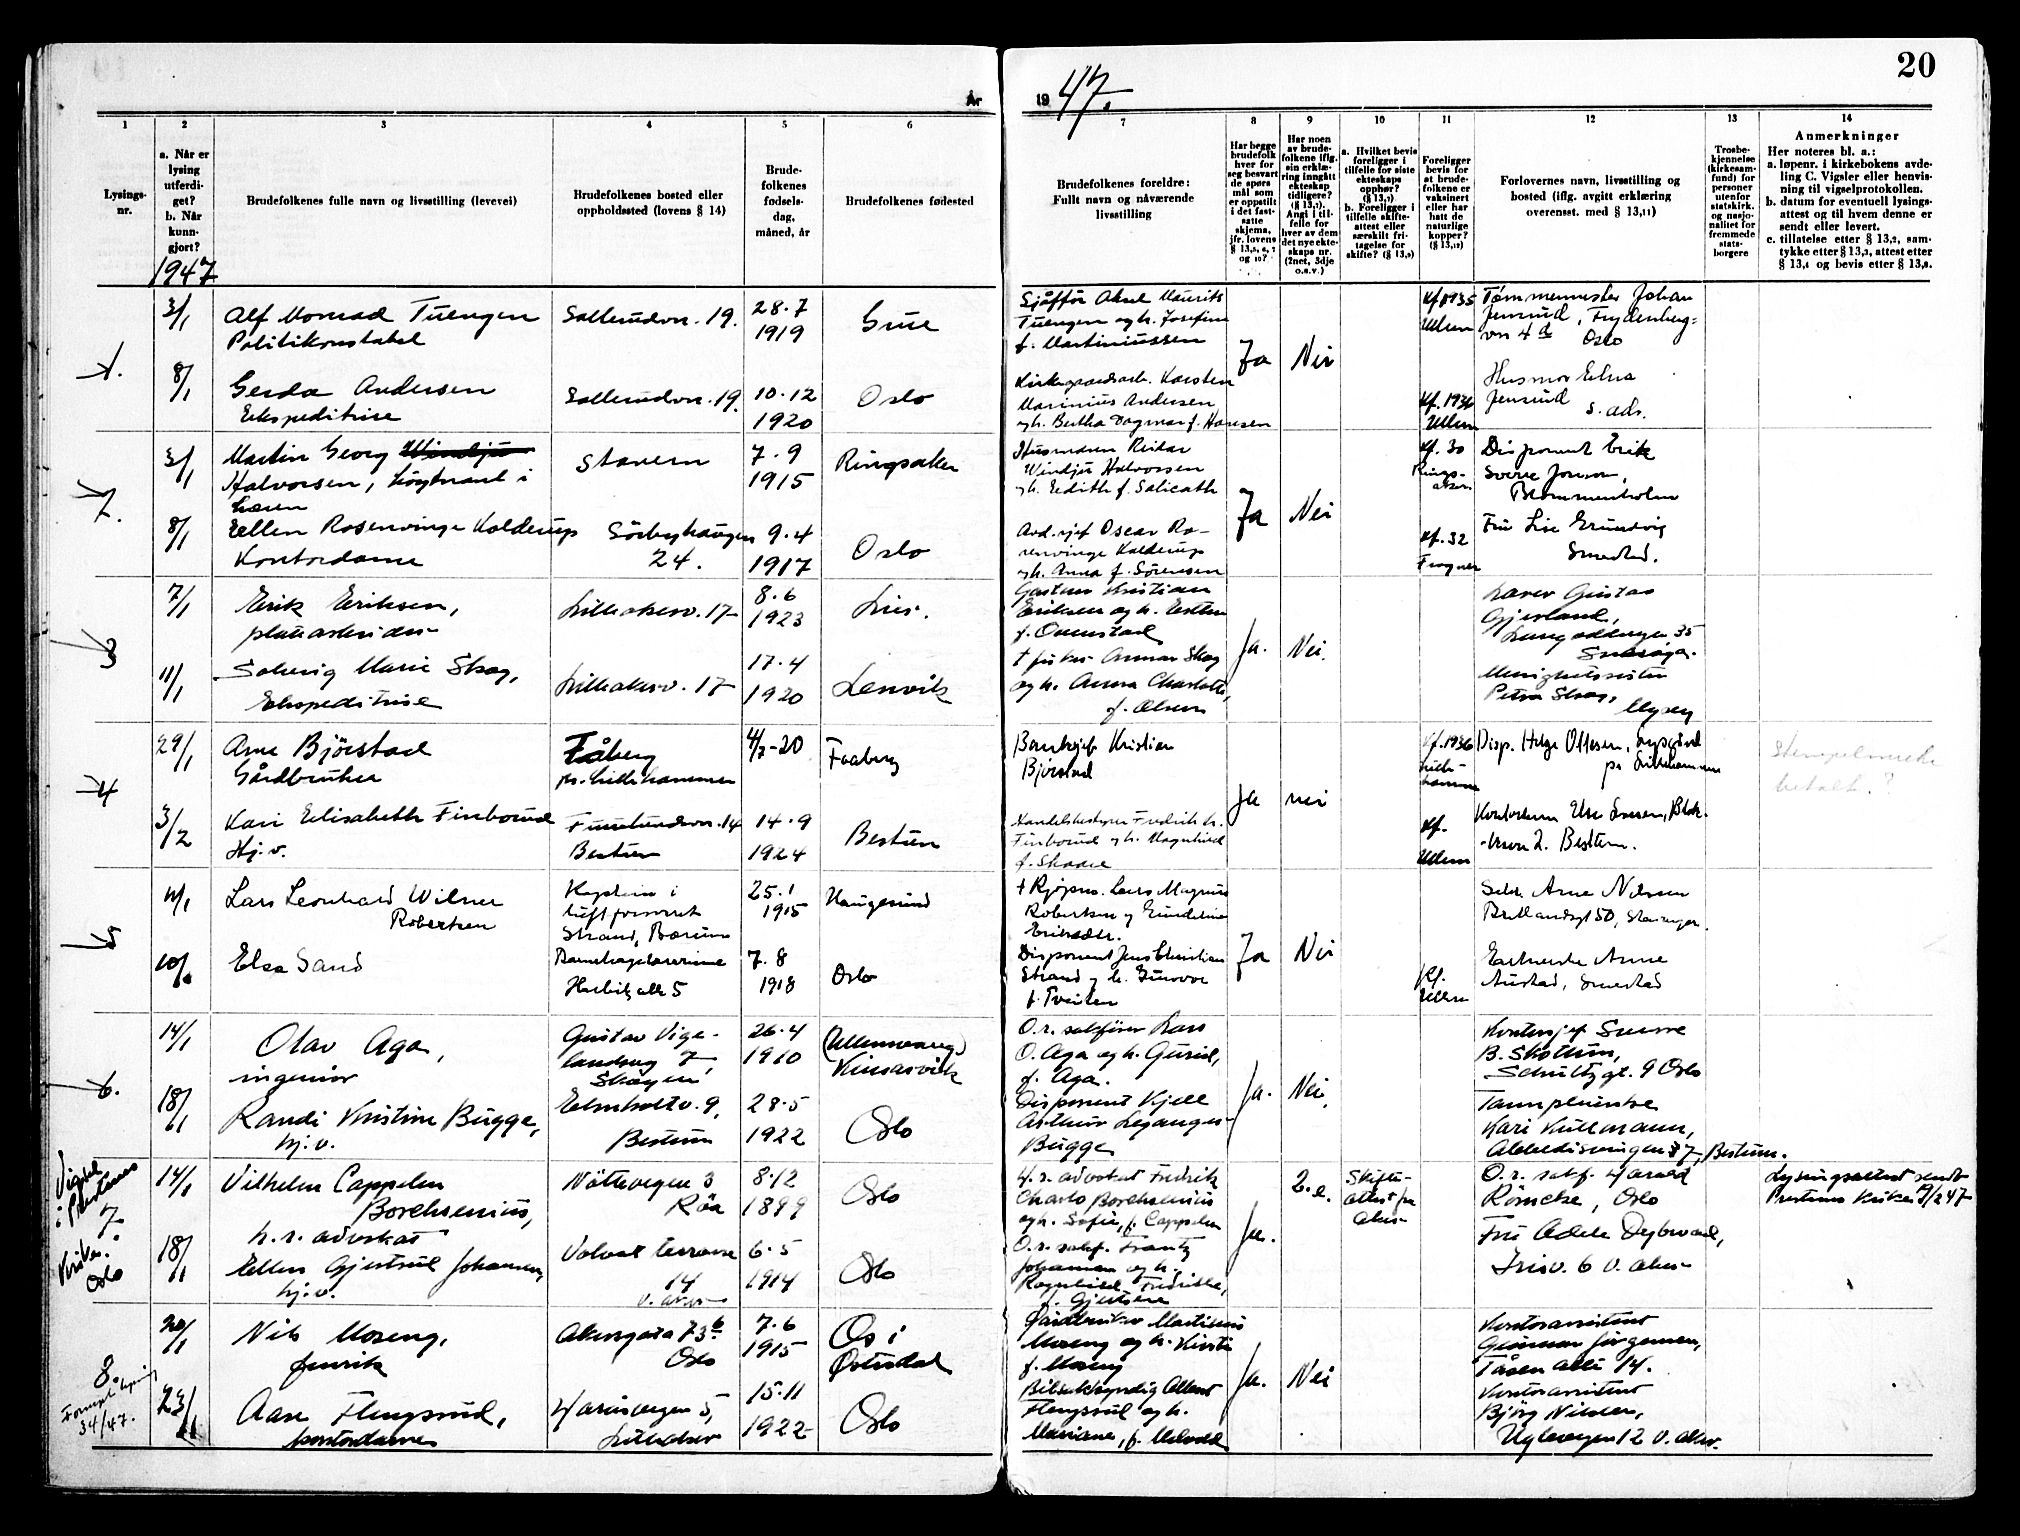 20
År
19 47.
1
2
3
4
5
6
7
8
9
10
11
12
13
14
Lysings-
nr.
a. Når er
lysing
utferdi-
get?
b. Når
kunn-
gjort?
1947
Brudefolkenes fulle navn og livsstilling (levevei)
Brudefolkenes bosted eller
oppholdssted (lovens § 14)
Brude-
folkenes
fødsels-
dag,
måned, år
Brudefolkenes fødested
Brudefolkenes foreldre:
Fullt navn og nåværende
livsstilling
Har begge
brudefolk
hver for
seg besvart
de spørs
mål som
er oppstilt
i det fast-
satte
skjema,
jfr. lovens
Har noen
av brude-
folkene iflg.
sin erklæ-
ring inngått
ekteskap
tidligere?
Angi i til-
felle for
hver av dem
det nye ekte-
skaps nr.
(2net, 3dje
o.s.v.)
a. Hvilket bevis
foreligger i
tilfelle for siste
ekteskaps
opphør?
b. Foreligger i
tilfelle skifte-
attest eller
særskilt fri-
tagelse for
skifte?
Foreligger
bevis for
at brude-
folkene er
vaksinert
eller har
hatt de
naturlige
kopper?
Forlovernes navn, livsstilling og
bosted (iflg. avgitt erklæring
overensst. med § 13,11)
Trosbe-
kjennelse
(kirkesam-
fund) for
personer
utenfor
statskirk.
og nasjo-
nalitet for
fremmede
stats-
borgere
Anmerkninger
Her noteres bl. a.:
a. løpenr. i kirkebokens avde-
ling C. Vigsler eller henvis-
ning til vigselprotokollen.
b. datum for eventuell lysings-
attest og til hvem denne er
sendt eller levert.
c. tillatelse etter § 13,2, sam-
tykke etter § 13,3, attest etter
§ 13,4 og bevis etter § 13,8.
1.
3/1
Alf Monrad Tuengen
Politikonstabel
Sollerudvn. 19.
28.7
1919
Grue
Sjåffør Aksel Maurits
Tuengen og h. Josefine
f. Martiniussen
Ja
Nei
Kf. 1935
Ullern
Tømmermester Johan
Jensrud, Frydenberg-
vn 4 d Oslo
8/1
Gerda Andersen
Ekspeditrise
Sollerudvn. 19.
10.12
1920
Oslo
Kirkegaardsarb. Karsten
Marinius Andersen
og h. Bertha Dagmar f. Hansen
Kf. 1936
Ullern
Husmor Edna
Jensrud
s. ads.
2.
3/1
Martin Georg Windju
Halvorsen, Løytnant i
hæren
Stavern
7.9
1915
Ringsaker
Windju Halvorsen
og h. Edith f. Salicath
Ja
Nei
Kf. 30
Rings-
aker
Disponent Erik
Sverre Jonson,
Blommenholm
8/1
Ellen Rosenvinge Kolderup
Kontordame
Sörbyhaugen
24.
9.4
1917
Oslo
Avd. sjef Oscar Ro-
senvinge Kolderup
og h. Anna f. Sörensen
Kf. 32
Frogner
Fru Lise Grundvig
Smestad.
3
7/1
Erik Eriksen,
platearbeider
Lilleakerv. 17
8.6
1923
Lier.
Gastav Kristian
Eriksen og h. Esther
f. Ovenstad
Ja.
Nei.
Gustav
Gjerland,
Langoddengen 35
Snarøya.
11/1
Solveig Marie Skog,
Ekspeditrise
Lilleakerv. 17
17.4
1920
Lenvik
† fisker Anmar Skog
og h. Anna Charlotte,
f. Olsen
Menighetssøster
Petra Skog,
Mysen
4
29/1
Arne Bjørstad
Gårdbruker
Fåberg
pr. Lillehammer
4/7-20
Faaberg
Banksjef Kristian
Bjørstad
Ja
nei
Kf. 1936
Lille-
hammer
Disp. Helge Ottesen, Nygård
pr Lillehammer
Stempelmerke
betalt.?
3/2
Kari Elisabeth Finborud
Hj. v.
Furulundvn. 14
Bestun
14.9
1924
Bestun
Handelsbestyrer Fredrik h.
Finborud og h. Magnhild
f. Skaare
Kf.
Ullern
2. Bestum.
5
4/1
Lars Leonhard Wilner
Robertsen
Kaptein i
luftforsvaret
Strand, Bærum
25.1
1915
Haugesund
† Kjøpm. Lars Magnus
Robertsen og Gundeline
Ja
Nei
Sekr. Arne Nilssen
50, Stavanger.
10/1
Elsa Sand
Barnehagelærerinne
Harbitzalle 5
7.8
1918
Oslo
Disponent Jens Christian
Strand og h. Gunvor
f. Tveiten
Kf.
Ullern
Arne
Austad, Smestad
6.
14/1
Olav Aga,
ingeniør
Gustav Vige-
landsveg 7
Skøyen
26.4
1910
(Ullensvang)
Kinsarvik
O.r. sakfører Lars
O. Aga og h. Gurid,
f. Aga.
Ja.
Nei.
Kontorsjef Sverre
B. Skotum,
Schultzgt. 9 Oslo
18/1
Randi Kristine Bugge,
hj. v.
Elmholtv. 9,
Bestum
28.5
1922
Oslo
Disponent Kjell
Asthur Leganger-
Bugge
Tannpleierske
Kari Kullmann,
Abbedisvingen 7, Bestum.
Vigsel
i Prestenes
7.
Kirke.
Oslo
14/1
Vilhelm Cappelen
Borchsenius,
h.r. advokat
Nöttevegen 3
Röa
8.12
1899
Oslo
H.r. advokat Fredrik
Charlo Borchsenius
og h. Sofie, f. Cappelen
Ja.
2.e.
Skifte-
attest fra
Aker
O.r. sakf. Harald
Römcke, Oslo
Lysingsattest sendt
Prestenes Kirke 19/2 47
18/1
Ellen Gjertrud Johansen,
hj. v.
Volvat terrasse
14
V. Aker
6.5
1914
Oslo
O.r. sakf. Frantz
Johansen og h.
Ragnhild Fredrikke,
f. Gjertsen
Fru Adele Dybwad,
Irisv. 6 V. Aker
8.
Fornyet lysing
34/47.
20/1
Nils Moseng,
fenrik
Akersgata 73 b
Oslo
7.6
1915
Os i
Østerdal
Gårdbruker Martinus
Moseng og h. Kirsti
f. Moseng
Ja.
Nei
Kontorassistent
Gunnar Jörgensen,
Tåsen allé 14.
23/1
Aase Flengsrud,
kontordame
Harasvegen 5,
Lilleaker
15.11
1922
Oslo
Bilsakkyndig Albert
Flengsrud og h.
Mariane, f.
Kontorassistent
Björg Nilsen,
Uglevegen 12 V. Aker.